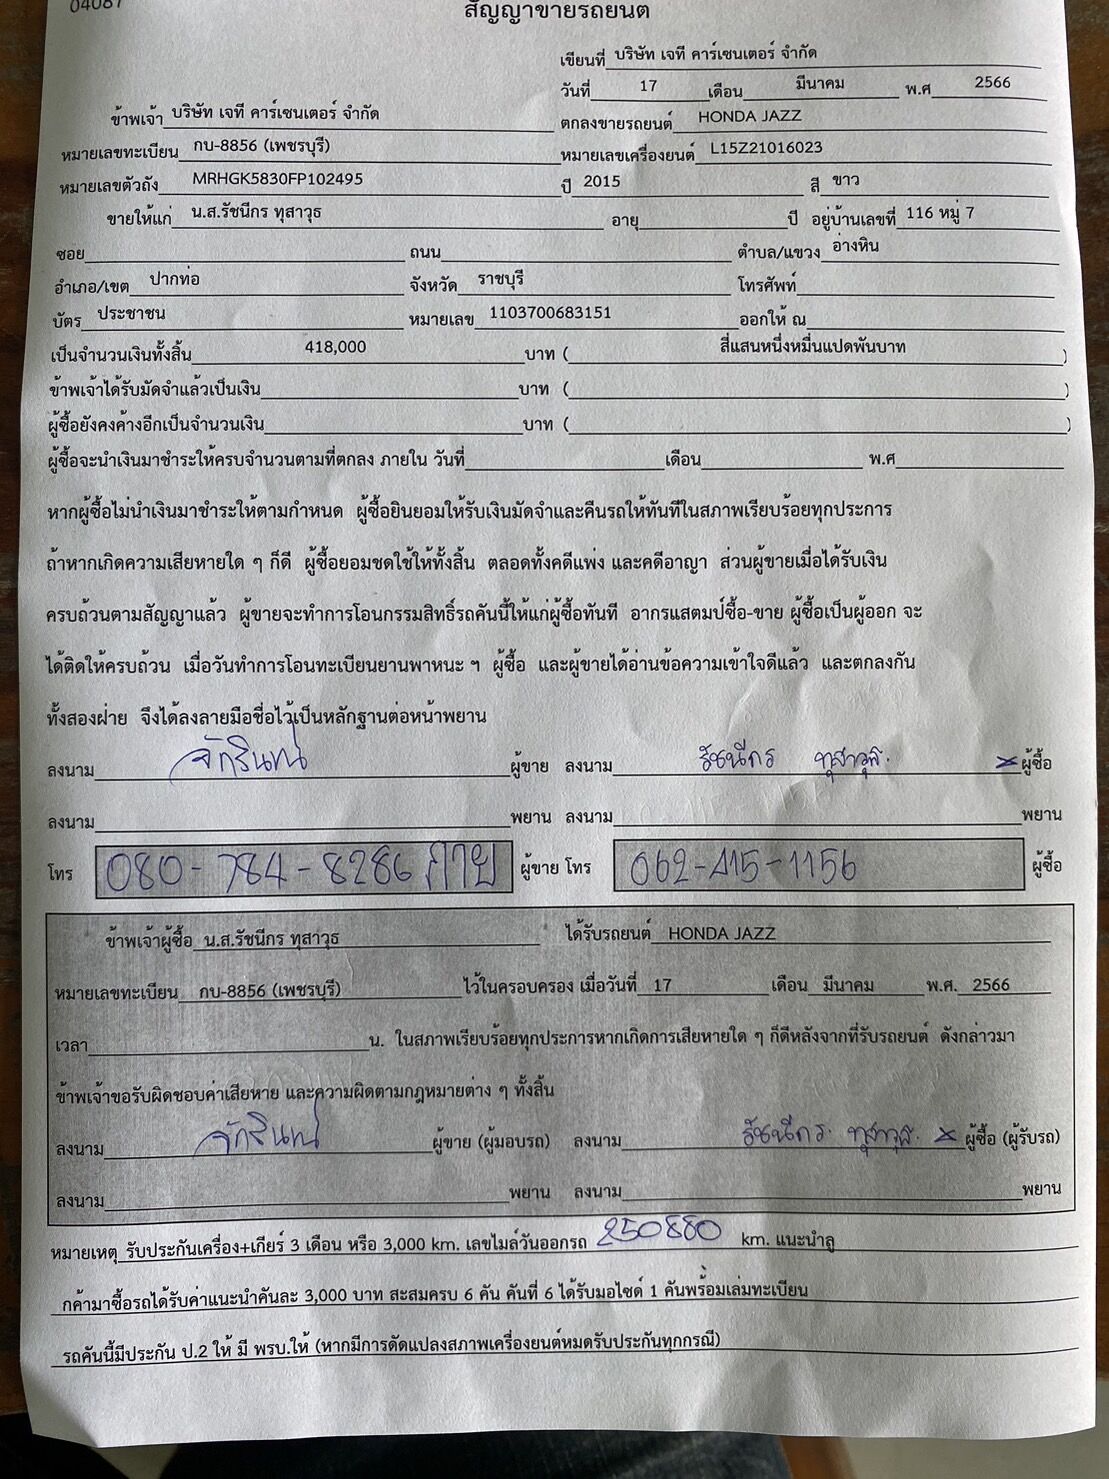 04087
สัญญาขายรถยนต์
เขียนที่ บริษัท เจที คาร์เซนเตอร์ จำกัด
วันที่ 17 เดือน มีนาคม พ.ศ 2566
ข้าพเจ้า บริษัท เจที คาร์เซนเตอร์ จำกัด ตกลงขายรถยนต์ HONDA JAZZ
หมายเลขทะเบียน กบ-8856 (เพชรบุรี) หมายเลขเครื่องยนต์ L15Z21016023
หมายเลขตัวถัง MRHGK5830FP102495 ปี 2015 สี ขาว
ขายให้แก่ น.ส.รัชนีกร ทุสาวุธ อายุ ปี อยู่บ้านเลขที่ 116 หมู่ 7
ซอย ถนน ตำบล/แขวง อ่างหิน
อำเภอ/เขต ปากท่อ จังหวัด ราชบุรี โทรศัพท์
บัตร ประชาชน หมายเลข 1103700683151 ออกให้ ณ
เป็นจำนวนเงินทั้งสิ้น 418,000 บาท ( สี่แสนหนึ่งหมื่นแปดพันบาท )
ข้าพเจ้าได้รับมัดจำแล้วเป็นเงิน บาท ( )
ผู้ซื้อยังคงค้างอีกเป็นจำนวนเงิน บาท ( )
ผู้ซื้อจะนำเงินมาชำระให้ครบจำนวนตามที่ตกลง ภายใน วันที่ เดือน พ.ศ
หากผู้ซื้อไม่นำเงินมาชำระให้ตามกำหนด ผู้ซื้อยินยอมให้รับเงินมัดจำและคืนรถให้ทันทีในสภาพเรียบร้อยทุกประการ
ถ้าหากเกิดความเสียหายใด ๆ ก็ดี ผู้ซื้อยอมชดใช้ให้ทั้งสิ้น ตลอดทั้งคดีแพ่ง และคดีอาญา ส่วนผู้ขายเมื่อได้รับเงิน
ครบถ้วนตามสัญญาแล้ว ผู้ขายจะทำการโอนกรรมสิทธิ์รถคันนี้ให้แก่ผู้ซื้อทันที อากรแสตมป์ซื้อ-ขาย ผู้ซื้อเป็นผู้ออก จะ
ได้ติดให้ครบถ้วน เมื่อวันทำการโอนทะเบียนยานพาหนะ ฯ ผู้ซื้อ และผู้ขายได้อ่านข้อความเข้าใจดีแล้ว และตกลงกัน
ทั้งสองฝ่าย จึงได้ลงลายมือชื่อไว้เป็นหลักฐานต่อหน้าพยาน
ลงนาม จักรินทน์ ผู้ขาย ลงนาม รัชนีกร ทุสาวุธ x ผู้ซื้อ
ลงนาม พยาน ลงนาม พยาน
โทร 080-784-8286 กาย ผู้ขาย โทร 062-415-1156 ผู้ซื้อ
ข้าพเจ้าผู้ซื้อ น.ส.รัชนีกร ทุสาวุธ ได้รับรถยนต์ HONDA JAZZ
หมายเลขทะเบียน กบ-8856 (เพชรบุรี) ไว้ในครอบครอง เมื่อวันที่ 17 เดือน มีนาคม พ.ศ. 2566
เวลา น. ในสภาพเรียบร้อยทุกประการหากเกิดการเสียหายใด ๆ ก็ดีหลังจากที่รับรถยนต์ ดังกล่าวมา
ข้าพเจ้าขอรับผิดชอบค่าเสียหาย และความผิดตามกฎหมายต่าง ๆ ทั้งสิ้น
ลงนาม ผู้ขาย (ผู้มอบรถ) ลงนาม รัชนีกร ทุสาวุธ x ผู้ซื้อ (ผู้รับรถ)
ลงนาม พยาน ลงนาม พยาน
หมายเหตุ รับประกันเครื่อง+เกียร์ 3 เดือน หรือ 3,000 km. เลขไมล์วันออกรถ 250880 km. แนะนำลู
กค้ามาซื้อรถได้รับค่าแนะนำคันละ 3,000 บาท สะสมครบ 6 คัน คันที่ 6 ได้รับมอไซด์ 1 คันพร้อมเล่มทะเบียน
รถคันนี้มีประกัน ป.2 ให้ มี พรบ.ให้ (หากมีการดัดแปลงสภาพเครื่องยนต์หมดรับประกันทุกกรณี)